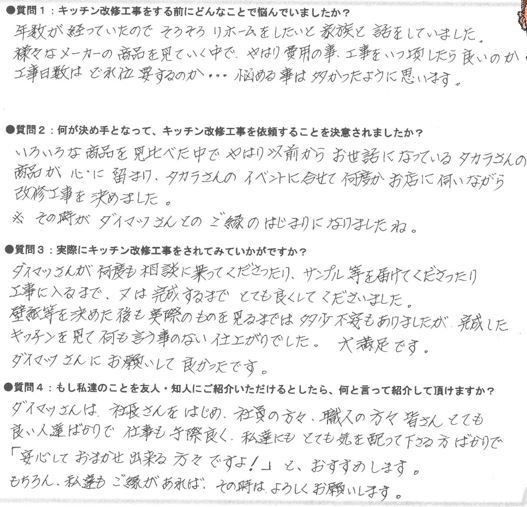 ●質問1：キッチン改修工事をする前にどんなことで悩んでいましたか？
年数が経っていたので そろそろ リホームをしたいと 家族と 話をしていました。
様々なメーカーの商品を見ていく中で、やはり費用の事、工事をいつ頃したら良いのか
工事日数は どれ位 要するのか・・・ 悩める事は 多かったように思います。
●質問2：何が決め手となって、キッチン改修工事を依頼することを決意されましたか？
いろいろな商品を見比べた中で やはり以前から お世話になっている タカラさんの
商品が 心に 留まり、タカラさんの イベントに合せて 何度か お店に 伺いながら
改修工事を 決めました。
※ その時が ダイマツさんとの ご縁の はじまりになりましたね。
●質問3：実際にキッチン改修工事をされてみていかがですか？
ダイマツさんが 何度も 相談に 乗ってくださったり、サンプル 等を届けてくださったり
工事に入るまで、又は 完成するまで とても 良くしてくださいました。
壁紙等を 決めた 後も 実際のものを見るまでは 多少不安もありましたが、完成した
キッチンを見て 何も 言う事のない 仕上がりでした。 大満足です。
ダイマツさんに お願いして 良かったです。
●質問4：もし私達のことを友人・知人にご紹介いただけるとしたら、何と言って紹介して頂けますか？
ダイマツさんは、社長さんを はじめ、社員の方々、職人の方々 皆さん とても
良い人達ばかりで 仕事も 手際良く、私達にも とても 気を配って下さる方ばかりで
「安心して おまかせ 出来る 方々 ですよ！」 と、おすすめします。
もちろん、私達も ご縁があれば、その時は よろしく お願いします。